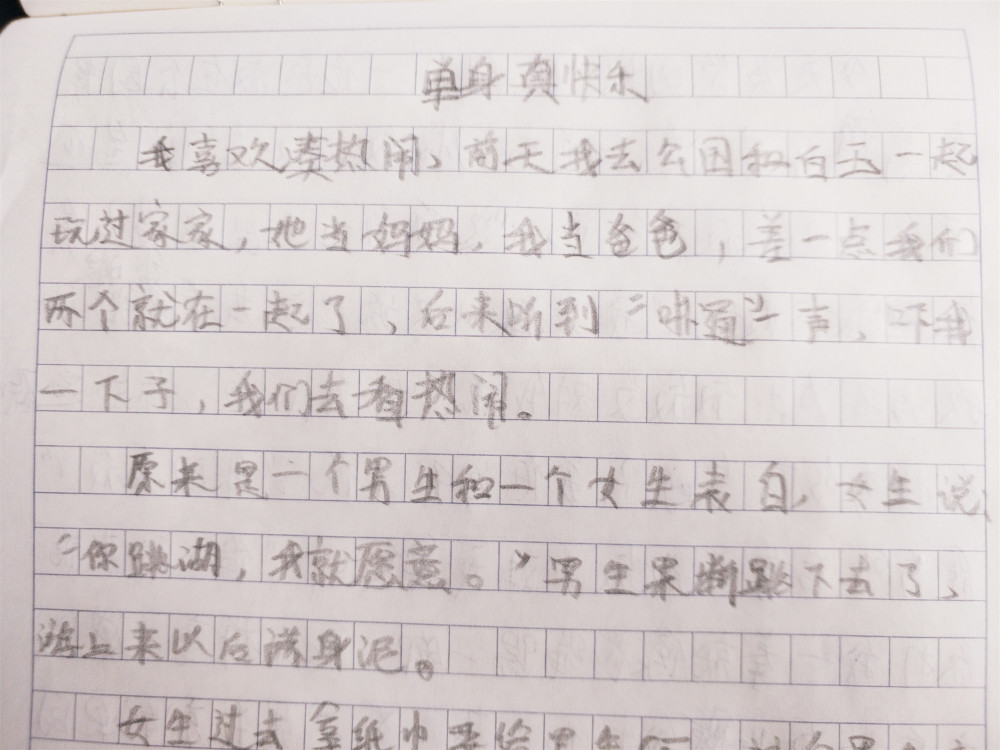 单身真快乐
我喜欢凑热闹、前天我去公园和白玉一起
玩过家家，她当妈妈，我当爸爸，差一点我们
两个就在一起了，后来听到“咔通”一声，吓我
一下子，我们去看热闹。
原来是一个男生和一个女生表白，女生说
“你跳湖，我就愿意。”男生果断跳下去了、
游上来以后满身泥。
女生过去拿纸巾要给男生